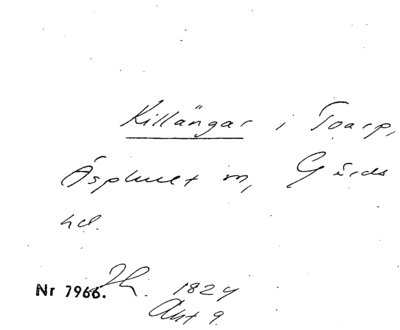 Killängar i Toarp,
Äsphult sn, Gärds
hd.
Nr 7966. 1824
Akt 9.